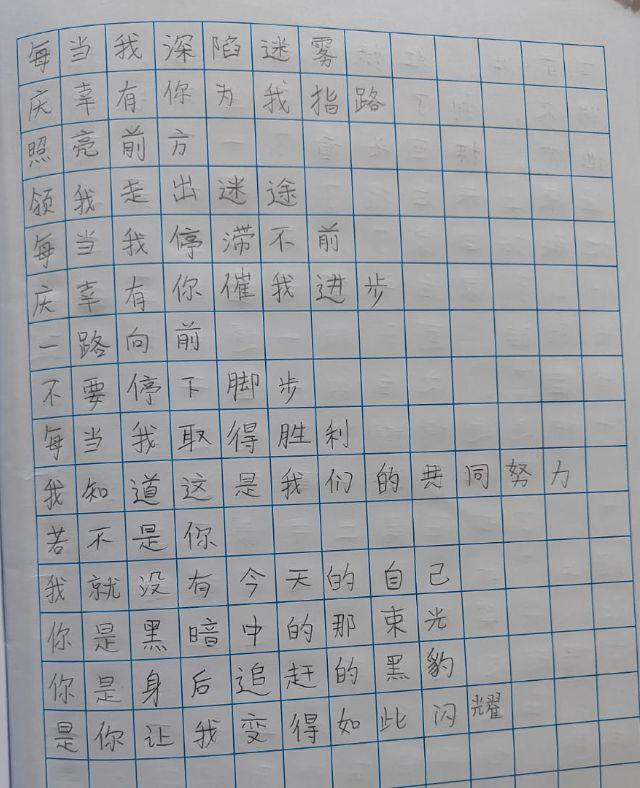 每当我深陷迷雾
庆幸有你为我指路
照亮前方
领我走出迷途
每当我停滞不前
庆幸有你催我进步
一路向前
不要停下脚步
每当我取得胜利
我知道这是我们的共同努力
若不是你
我就没有今天的自己
你是黑暗中的那束光
你是身后追赶的黑豹
是你让我变得如此闪耀